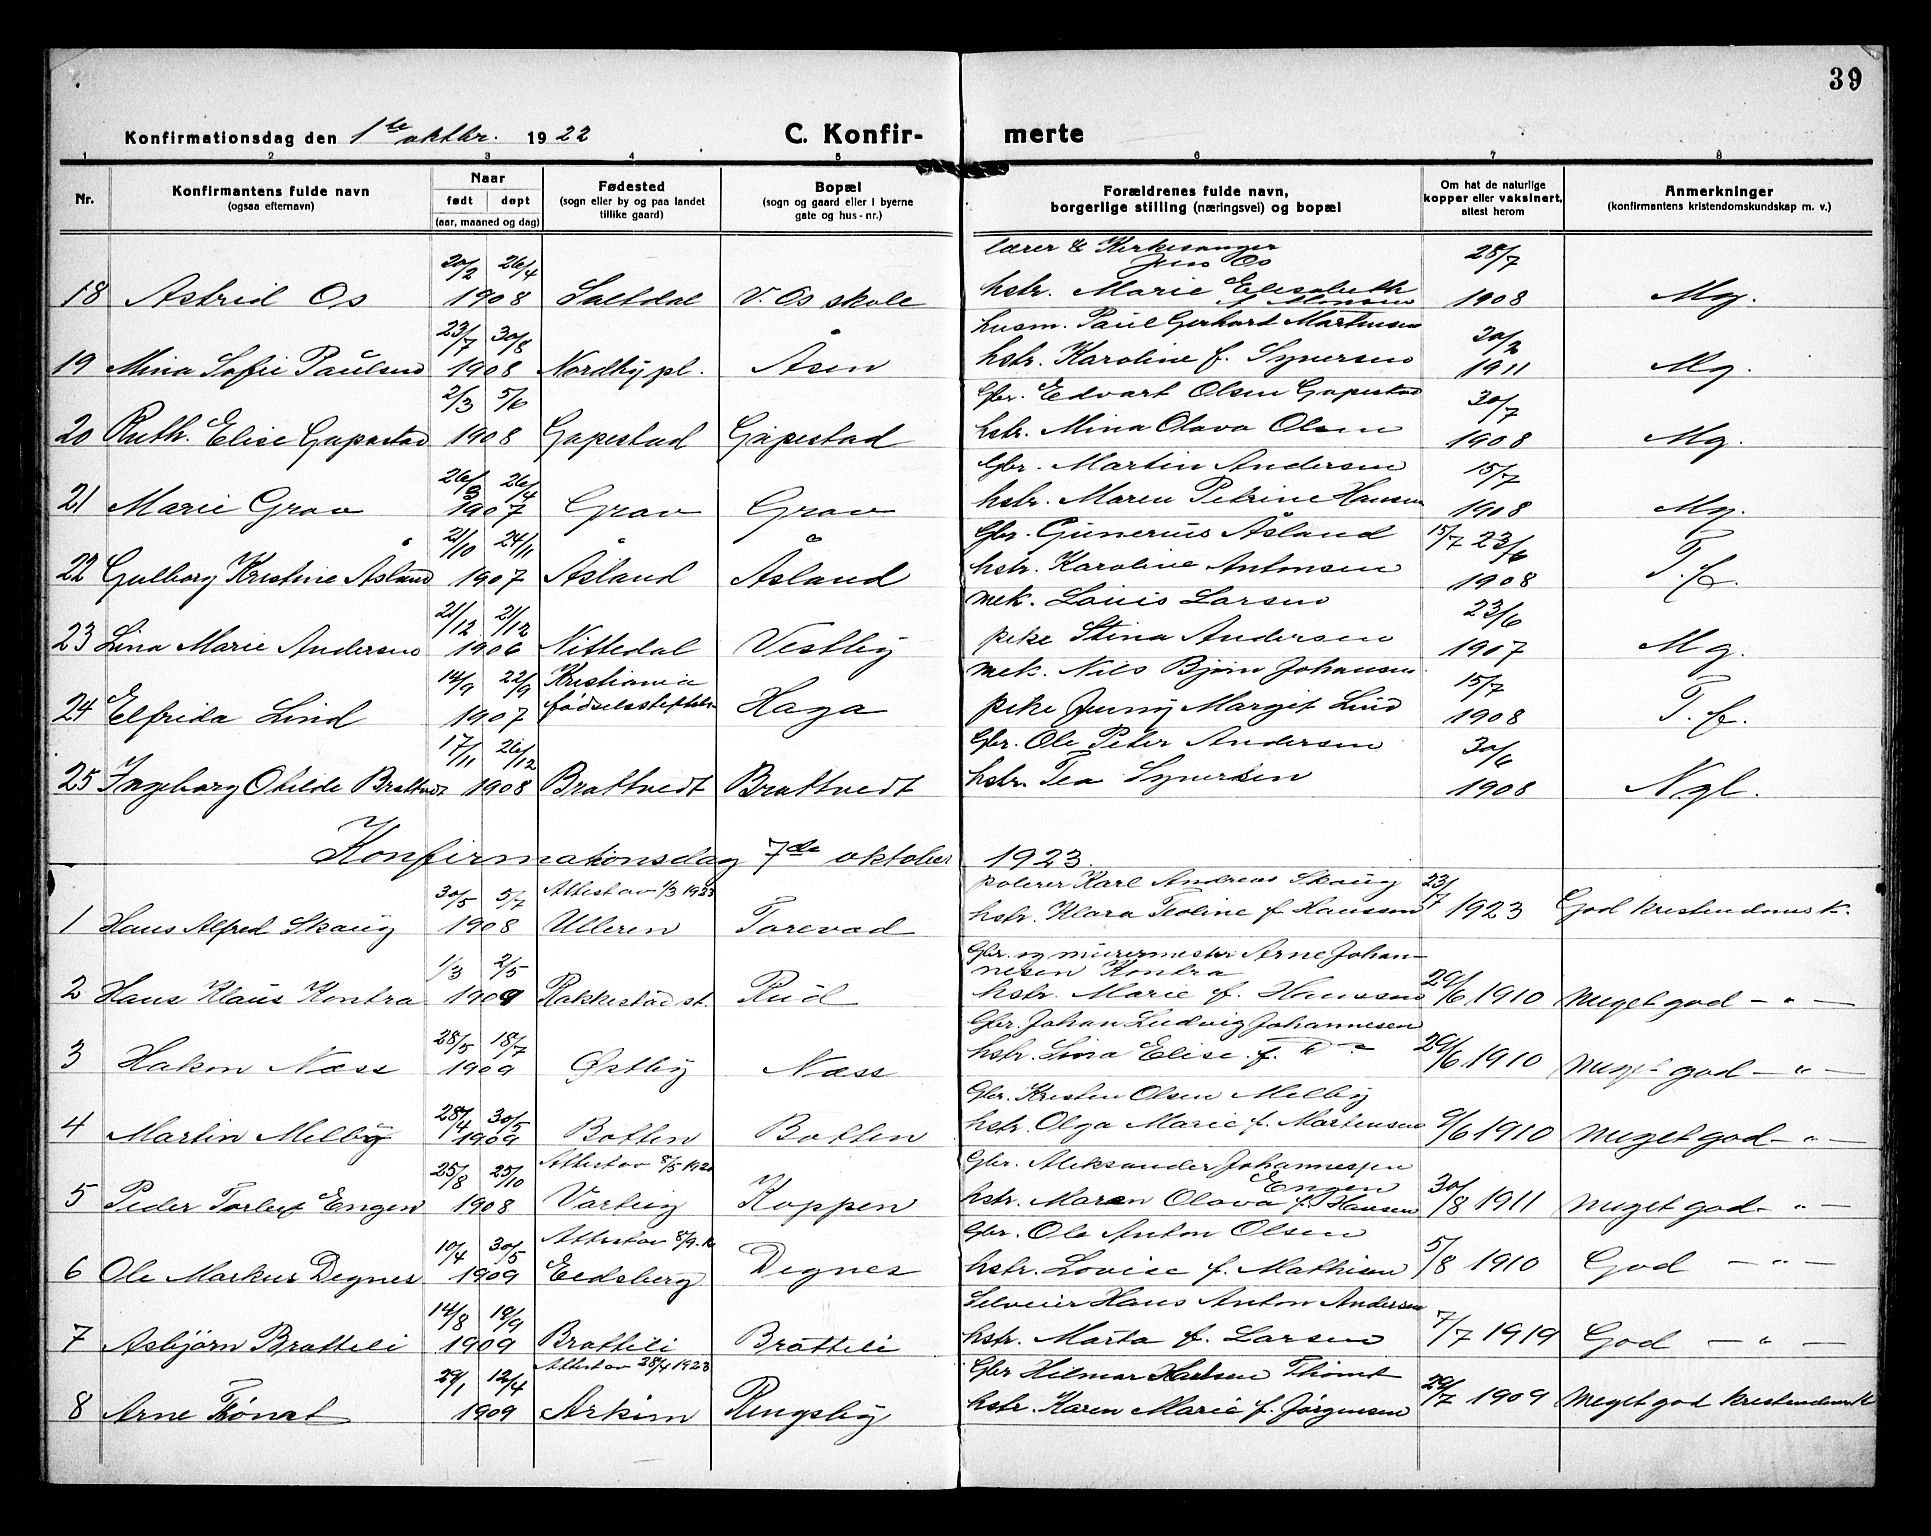 39
Konfirmationsdag den 1ste oktbr. 1922 C. Konfir- merte
1 2 3 4 5 6 7 8
Nr. Konfirmantens fulde navn (ogsaa efternavn) Naar født døpt (aar, maaned og dag) Fødested (sogn eller by og paa landet tillike gaard) Bopæl (sogn og gaard eller i byerne gate og hus-nr.) Forældrenes fulde navn, borgerlige stilling (næringsvei) og bopæl Om hat de naturlige kopper eller vaksinert, attest herom Anmerkninger (konfirmantens kristendomskundskap m. v.)
20/2 26/4 lærer & Kirkesanger Jens Os 28/7
18 Astrid Os 1908 Saltdal V. Os skole hstr. Marie Elisabeth 1908 Mg.
23/7 30/8 husm. Paul Gerhart Martinsen 20/2
19 Mina Sofie Paulsen 1908 Nordby pl. Åsen hstr. Karoline f. Syversen 1911 Mg.
2/3 5/6 Gbr. Edvart Olsen Gapestad 30/7
20 Ruth. Elise Gapestad 1908 Gapestad Gapestad hstr. Mina Olava Olsen 1908 Mg.
26/3 26/4 Gbr. Martin Andersen 15/7
21 Marie Grav 1907 Grav Grav hstr. Maren Petrine Hansen 1908 Mg.
21/10 24/11 Gbr. Gunerius Åsland 15/7 23/6
22 Gulborg Kristine Åsland 1907 Åsland Åsland hstr. Karoline Antonsen 1908 T.f.
21/12 21/12 mek. Louis Larsen 23/6
23 Lina Marie Andersen 1906 Nittedal Vestby pike Stina Andersen 1907 Mg.
14/9 22/9 Kristiania mek. Nils Bjørn Johansen 15/7
24 Elfrida Lind 1907 Haga pike Jenny Margit Lind 1908 T.f.
17/11 26/12 Gbr. Ole Peter Andersen 30/6
25 Ingeborg Otilde Brattvedt 1908 Brattvedt Brattvedt hstr. Tea Syversen 1908 Ngl.
Konfirmationsdag 7de oktober 1923.
30/5 5/7 Attest av 1/3 1923 polerer Karl Andreas Skaug 23/7
1 Hans Alfred Skaug 1908 Ulleren Torevad hstr. Klara Teoline f. Hanssen 1923 God kristendomsk.
1/3 2/5 Gbr. og murermester Arne Johan-
nesen Kontra
2 Hans Klaus Kontra 1909 Rakkestad st. Rud hstr. Marie f. Hanssen 29/6 1910 meget god — " —
28/5 18/7 Gbr. Johan Ludvig Johannesen
3 Hakon Næss 1909 Østby Næss hstr. Lina Elise f. 29/6 1910 meget god — " —
28/4 30/5 Gbr. Kristen Olsen Melby
4 Martin Melby 1909 Botten Botten hstr. Olga Marie f. Martensen 9/6 1910 meget god — " —
25/8 25/10 Attest av 8/5 1923 Gbr. Aleksander Johannessen Engen
5 Peder Torleif Engen 1908 Varteig Koppen hstr. Maren Olava f. Hansen 30/8 1911 meget god — " —
10/4 30/5 Attest av 8/9. Gbr. Ole Anton Olsen
6 Ole Markus Degnes 1909 Eidsberg Degnes hstr. Lovise f. Mathisen 5/8 1910 God — " —
14/8 19/9 Hans Anton Andersen
7 Asbjørn Bratteli 1909 Bratteli Bratteli hstr. Marta f. Larsen 7/7 1919 God — " —
29/1 12/4 Attest av 28/4 1923 Gbr Hilmar Karlsen Thömt
8 Arne Thömt 1909 Askim Ringsby hstr. Karen Marie f. Jørgensen 29/7 1909 Meget god kristendomsk